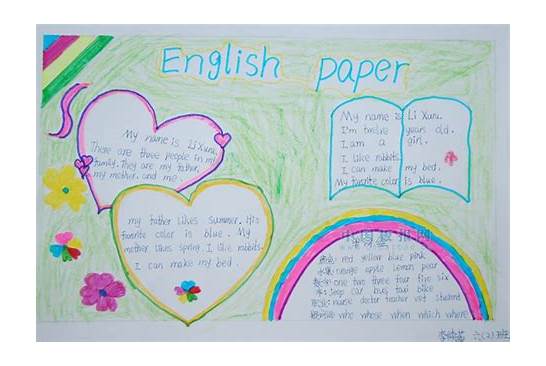 English paper
My name is Li Xuru.
There are three people in my
family. They are my father,
my mother. and me
my father likes summer. His
favorite color is blue. My
mother likes spring. I like rabbits.
I can make my bed.
My name is Li Xuru.
I'm twelve years old.
I am a girl.
I like rabbits.
I can make my bed.
My favorite color is blue.
中国教报网
颜色: red yellow blue pink
水果: orange apple lemon pear
数字: one two three four five six
车: jeep car bus taxi bike
职业: nurse doctor teacher vet student
who whose when which where
六(2)班